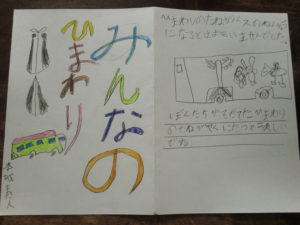 みんなの
ひまわり
ひまわりのたねがバスのねんりょう
になるとはおもいませんでした。
ぼくたちがそだてたひまわり
のたねがやくにたつと うれしい